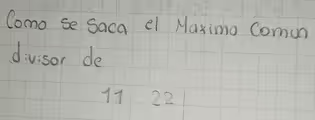 Como se Saca el Maximo Comun
divisor de
11 22